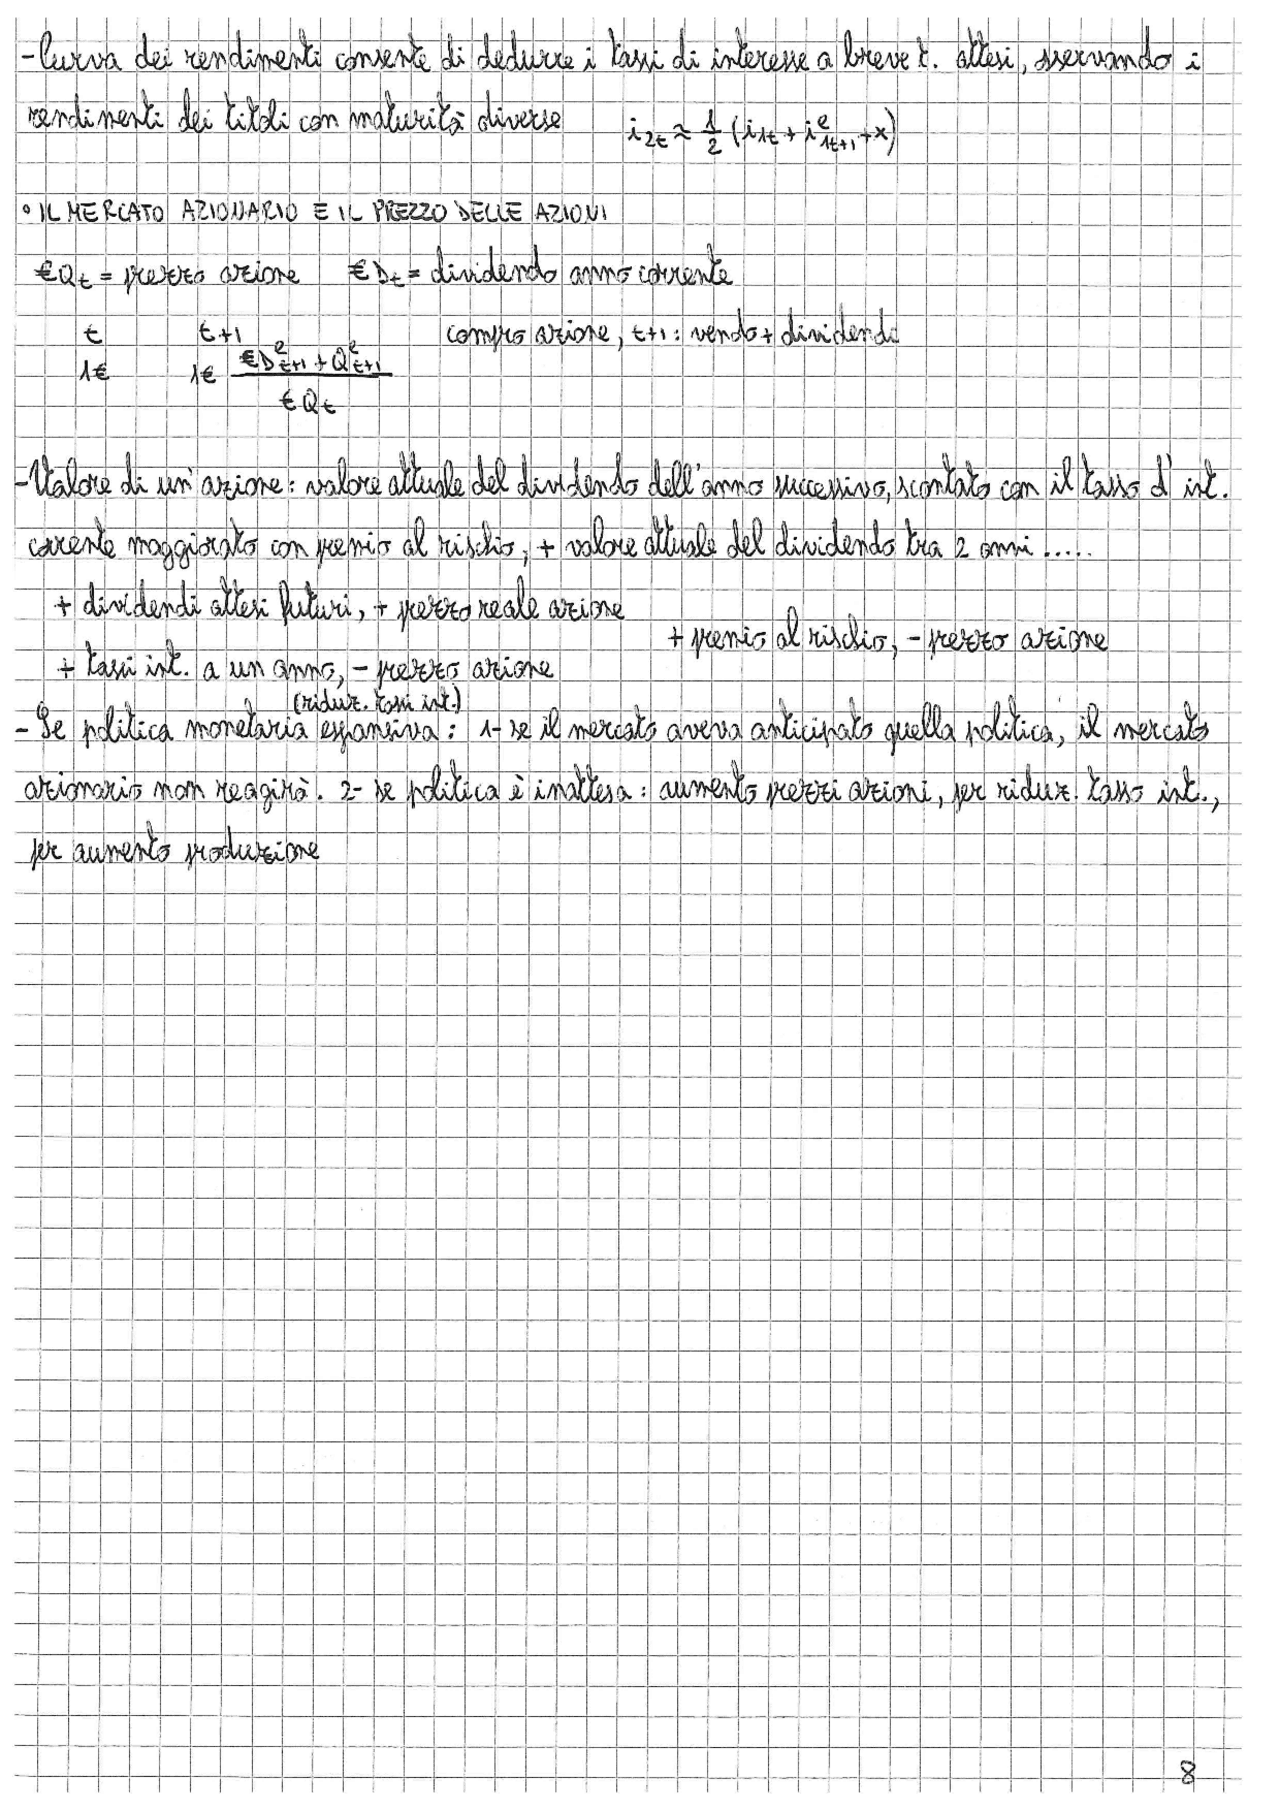 - Curva dei rendimenti consente di dedurre i tassi di interesse a breve t. attesi, osservando i
rendimenti dei titoli con maturità diverse   i₂ₜ ≈ 1/2 (i₁ₜ + iᵉ₁ₜ₊₁ + x)
• IL MERCATO AZIONARIO E IL PREZZO DELLE AZIONI
€Qₜ = prezzo azione   €Dₜ = dividendo anno corrente
t   t+1   compro azione, t+1: vendo + dividendo
1€   1€ (€Dᵉₜ₊₁ + Qᵉₜ₊₁) / €Qₜ
- Valore di un'azione: valore attuale del dividendo dell'anno successivo, scontato con il tasso d'int.
corrente maggiorato con premio al rischio, + valore attuale del dividendo tra 2 anni .....
+ dividendi attesi futuri, + prezzo reale azione
+ premio al rischio, - prezzo azione
+ tassi int. a un anno, - prezzo azione
(riduz. tassi int.)
- Se politica monetaria espansiva: 1- se il mercato aveva anticipato quella politica, il mercato
azionario non reagirà. 2- se politica è inattesa: aumento prezzi azioni, per riduz. tasso int.,
per aumento produzione
8